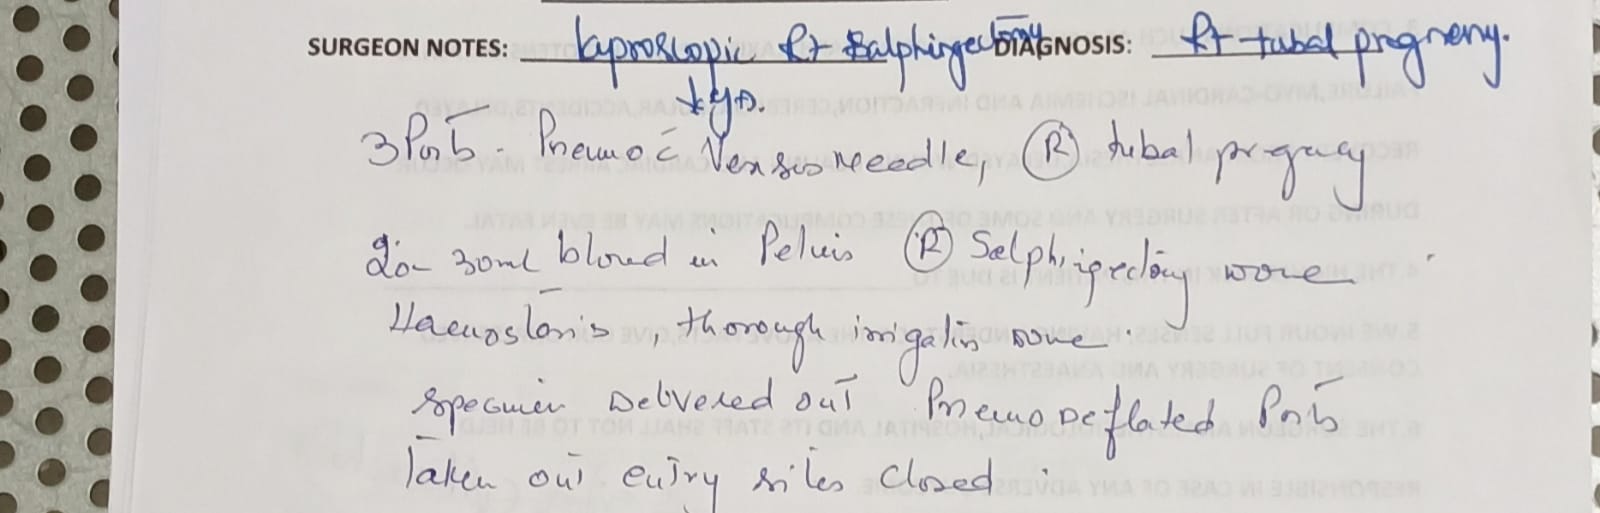 SURGEON NOTES: Lyproscopic Rt Salphingectomy DIAGNOSIS: Rt tubal pregneny.
3 Port - Pneumo c̄ Verses Needle, (R) tubal pregnacy
20- 30ml blood in Pelvis (R) Salphigectomy Done
Haemostasis, thorough irrigation Done.
Specimen Delivered out Pneumo Deflated Ports
Taken out entry sites Closed